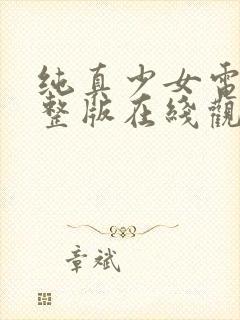 纯真少女電
整版在綫觀
章斌